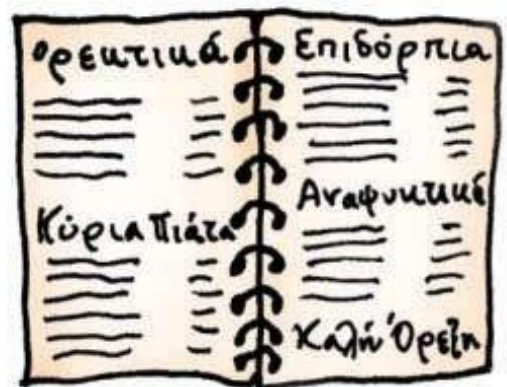 Ορεκτικά
Κύρια Πιάτα
Επιδόρπια
Αναψυκτικά
Καλή Όρεξη